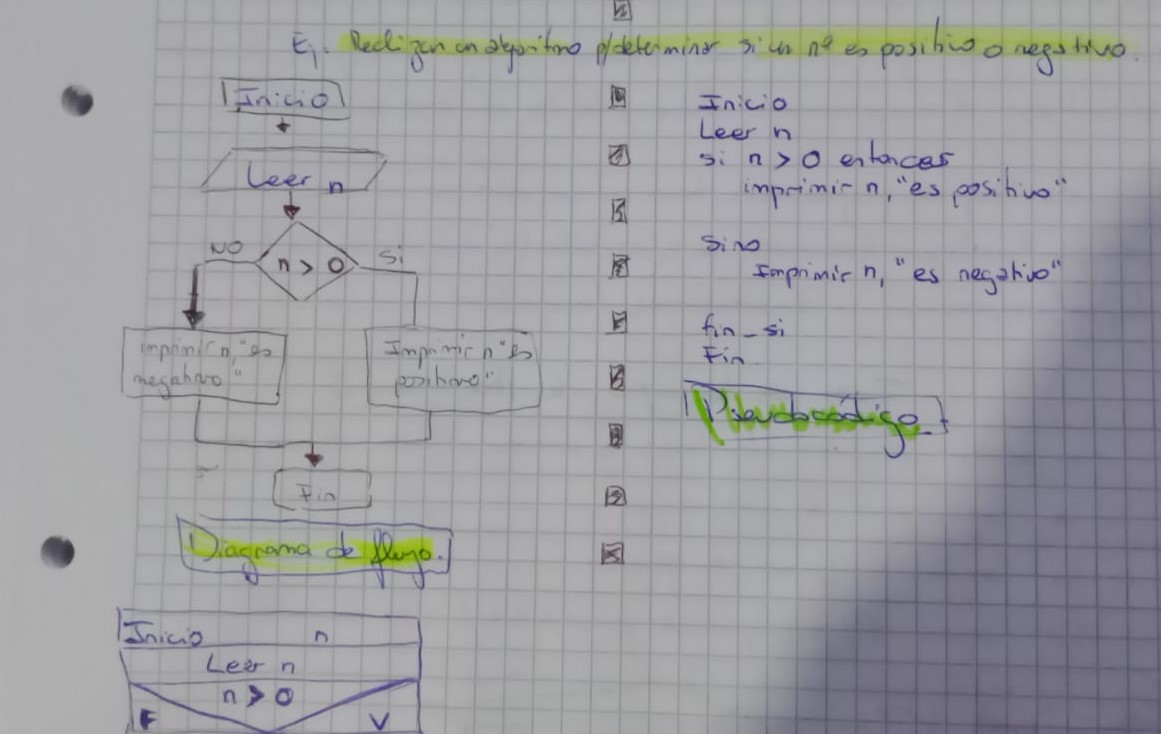 Ej. Realizar un algoritmo p/determinar si un nº es positivo o negativo.
Inicio
Leer n
n > 0
NO
Si
imprimir n, "es
negativo"
Imprimir n "es
positivo"
Fin
Diagrama de flujo.
Inicio
Leer n
si n > 0 entonces
imprimir n, "es positivo"
Sino
Imprimir n, "es negativo"
fin_si
Fin
Pseudocódigo
Inicio n
Leer n
n > 0
F V